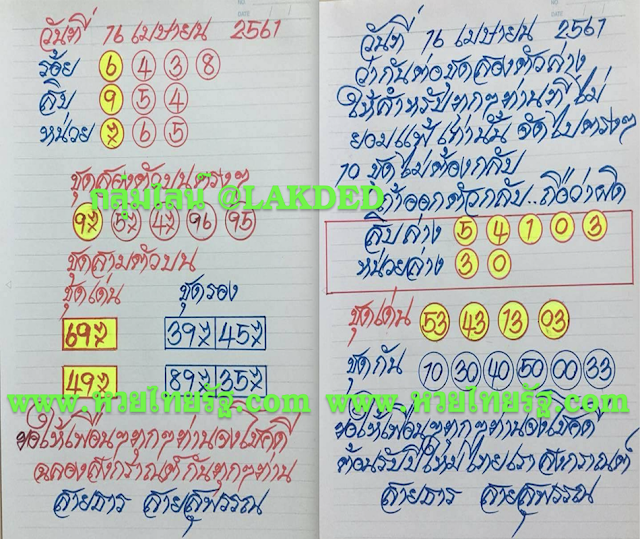 วันที่ 16 เมษายน 2561
ร้อย 6 4 3 8
สิบ 9 5 4
หน่วย 7 6 5
ชุดสองตัวบนตรงๆ
กลุ่มไลน์ @LAKDED
97 57 47 96 95
ชุดสามตัวบน
ชุดเด่น ชุดรอง
697 397 457
497 897 357
www.หวยไทยรัฐ.com
ขอให้เพื่อนๆทุกๆท่านจงโชคดี
ฉลองสงกรานต์กันทุกๆท่าน
สายธาร สายสุพรรณ
วันที่ 16 เมษายน 2561
ว่ากันต่อชุดสองตัวล่าง
ให้สำหรับทุกๆท่านที่ไม่
ยอมแพ้เท่านั้น จัดไปตรงๆ
10 ชุดไม่ต้องกลับ
ถ้าออกตัวกลับ..ถือว่าผิด
สิบล่าง 5 4 1 0 3
หน่วยล่าง 3 0
ชุดเด่น 53 43 13 03
ชุดกัน 10 30 40 50 00 33
www.หวยไทยรัฐ.com
ขอให้เพื่อนๆทุกๆท่านจงโชคดี
ต้อนรับปีใหม่ไทยเราสงกรานต์
สายธาร สายสุพรรณ